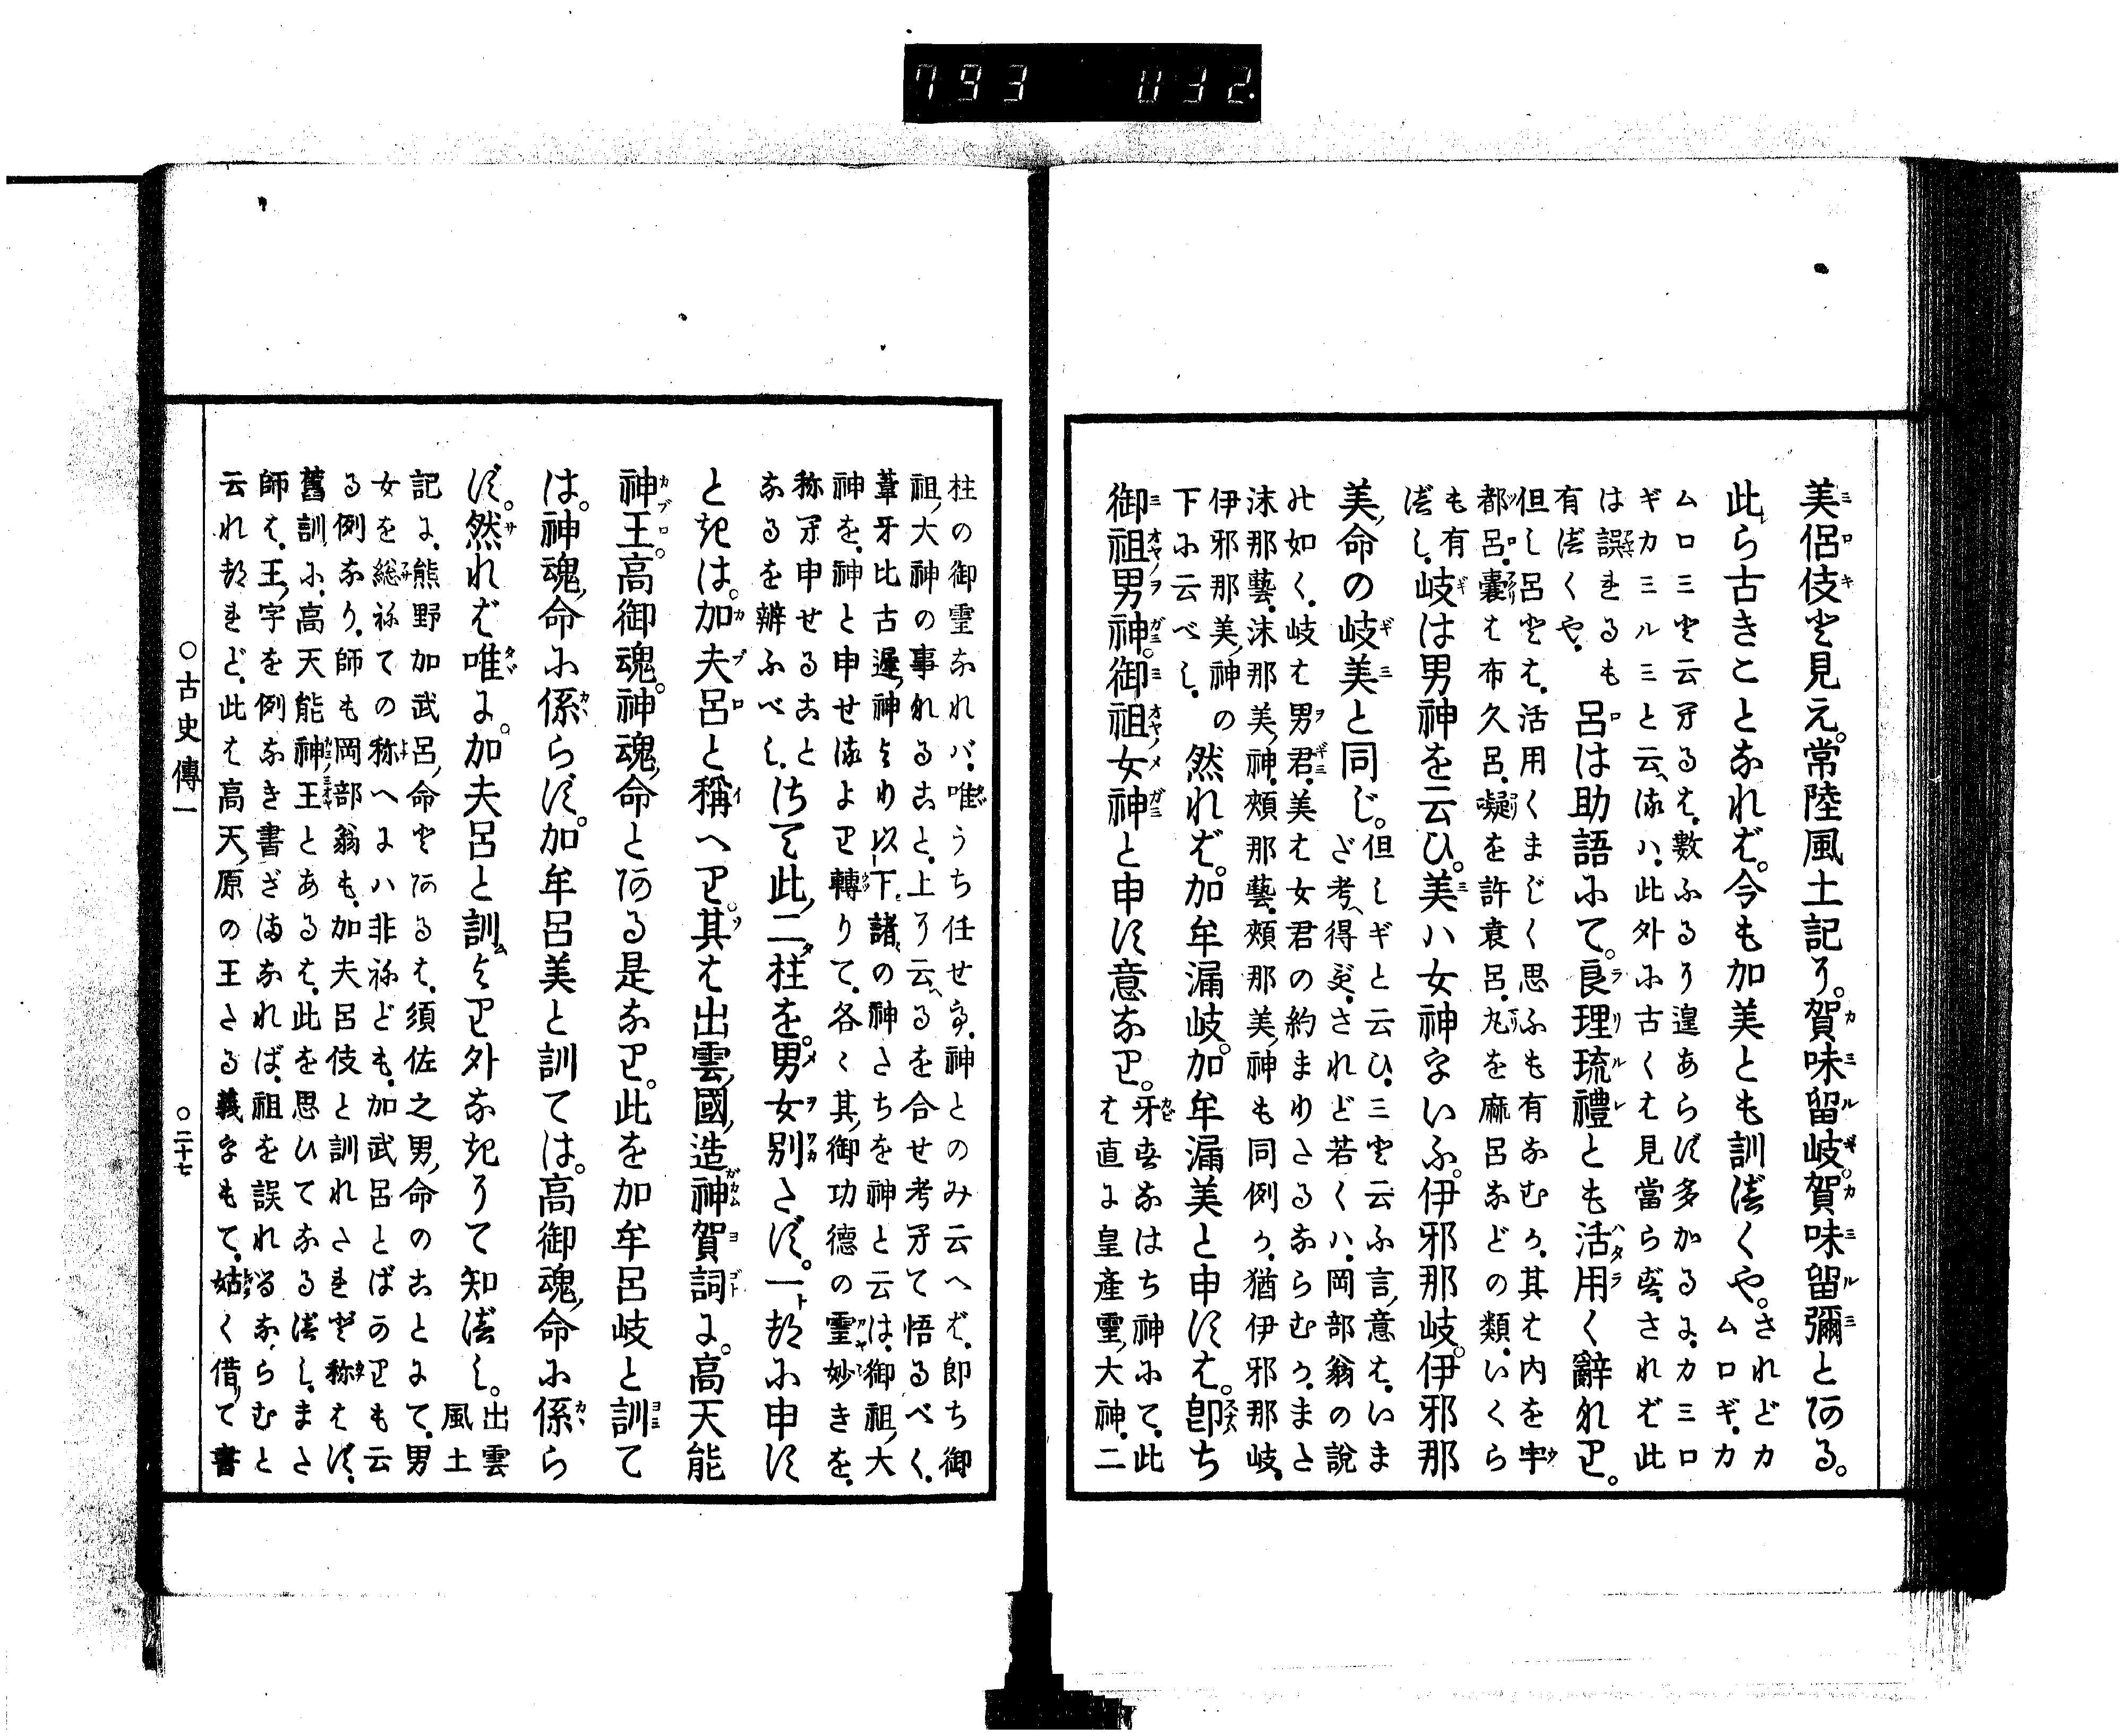 793 032.
美侶伎と見え。常陸風土記に。賀味留岐。賀味留彌とある。
此ら古きことなれば。今も加美とも訓べくや。されどカムロギ、カ
ムロミと云するは、數ふるに遑あらず多かるに、カミロ
ギカミルミと云るハ、此外に古くは見當らず、されば此
は誤れるも有べくや、呂は助語にて。良理琉禮とも活用く辭なり。
但し呂とは、活用くまじく思ふも有なむか、其は内を宇
都呂、嚢は布久呂、凝を許袁呂、丸を麻呂などの類、いくら
も有べし、岐は男神を云ひ。美ハ女神をいふ。伊邪那岐。伊邪那
美命の岐美と同じ。但しギと云ひ、ミと云ふ言意は、いま
ざ考得ず、されど若くハ、岡部翁の說
の如く、岐は男君、美は女君の約まりたるならむか、また
沫那藝、沫那美神、頰那藝、頰那美神も同例か、猶伊邪那岐、
伊邪那美神の下に云べし、然れば。加牟漏岐。加牟漏美と申すは。卽ち
御祖男神。御祖女神と申す意なり。牙すなはち神にて、此は直に皇產靈大神、二
柱の御靈なれバ、唯うち任せて、神とのみ云へば、即ち御
祖大神の事なること、上に云へるを合せ考へて悟るべく、
葦牙比古遲神より以下、諸の神たちを神と云は、御祖大
神を、神と申せるより轉りて、各々其御功德の靈妙きを、
称へ申せることなるを辨ふべし、さて此二柱を。男女別たず。一つに申す
ときは。加夫呂と稱へり。其は出雲國造神賀詞に。高天能
神王。高御魂。神魂命とある是なり。此を加牟呂岐と訓て
は。神魂命に係らず。加牟呂美と訓ては。高御魂命に係ら
ず。然れば唯に。加夫呂と訓より外なきにて知べし。出雲風土
記に、熊野加武呂命とあるは、須佐之男命のことにて、男
女を総ねての称へにハ非ねども、加武呂とばのりも云
る例なり、師も岡部翁も、加夫呂伎と訓れたれど称はず、
舊訓に、高天能神王とあるは、此を思ひてなるべし、また
師は、王字を例なき書ざまなれば、祖を誤れるならむと
云れつれど、此は高天原の王たる義をもて、姑く借て書
○古史傳一 ○二十七